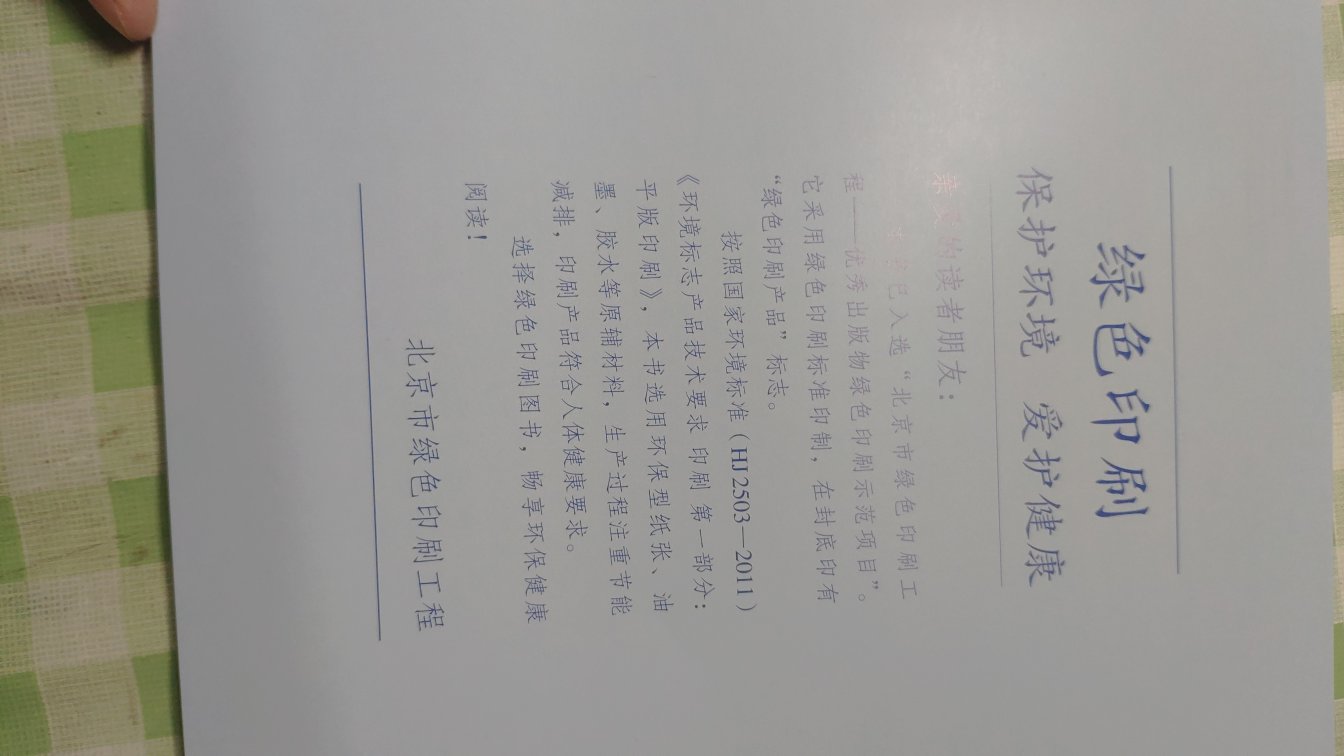 绿色印刷
保护环境 爱护健康
的读者朋友：
已入选“北京市绿色印刷工
程——优秀出版物绿色印刷示范项目”。
它采用绿色印刷标准印制，在封底印有
“绿色印刷产品”标志。
按照国家环境标准（HJ2503—2011）
《环境标志产品技术要求 印刷 第一部分：
平版印刷》，本书选用环保型纸张、油
墨、胶水等原辅材料，生产过程注重节能
减排，印刷产品符合人体健康要求。
选择绿色印刷图书，畅享环保健康
阅读！
北京市绿色印刷工程